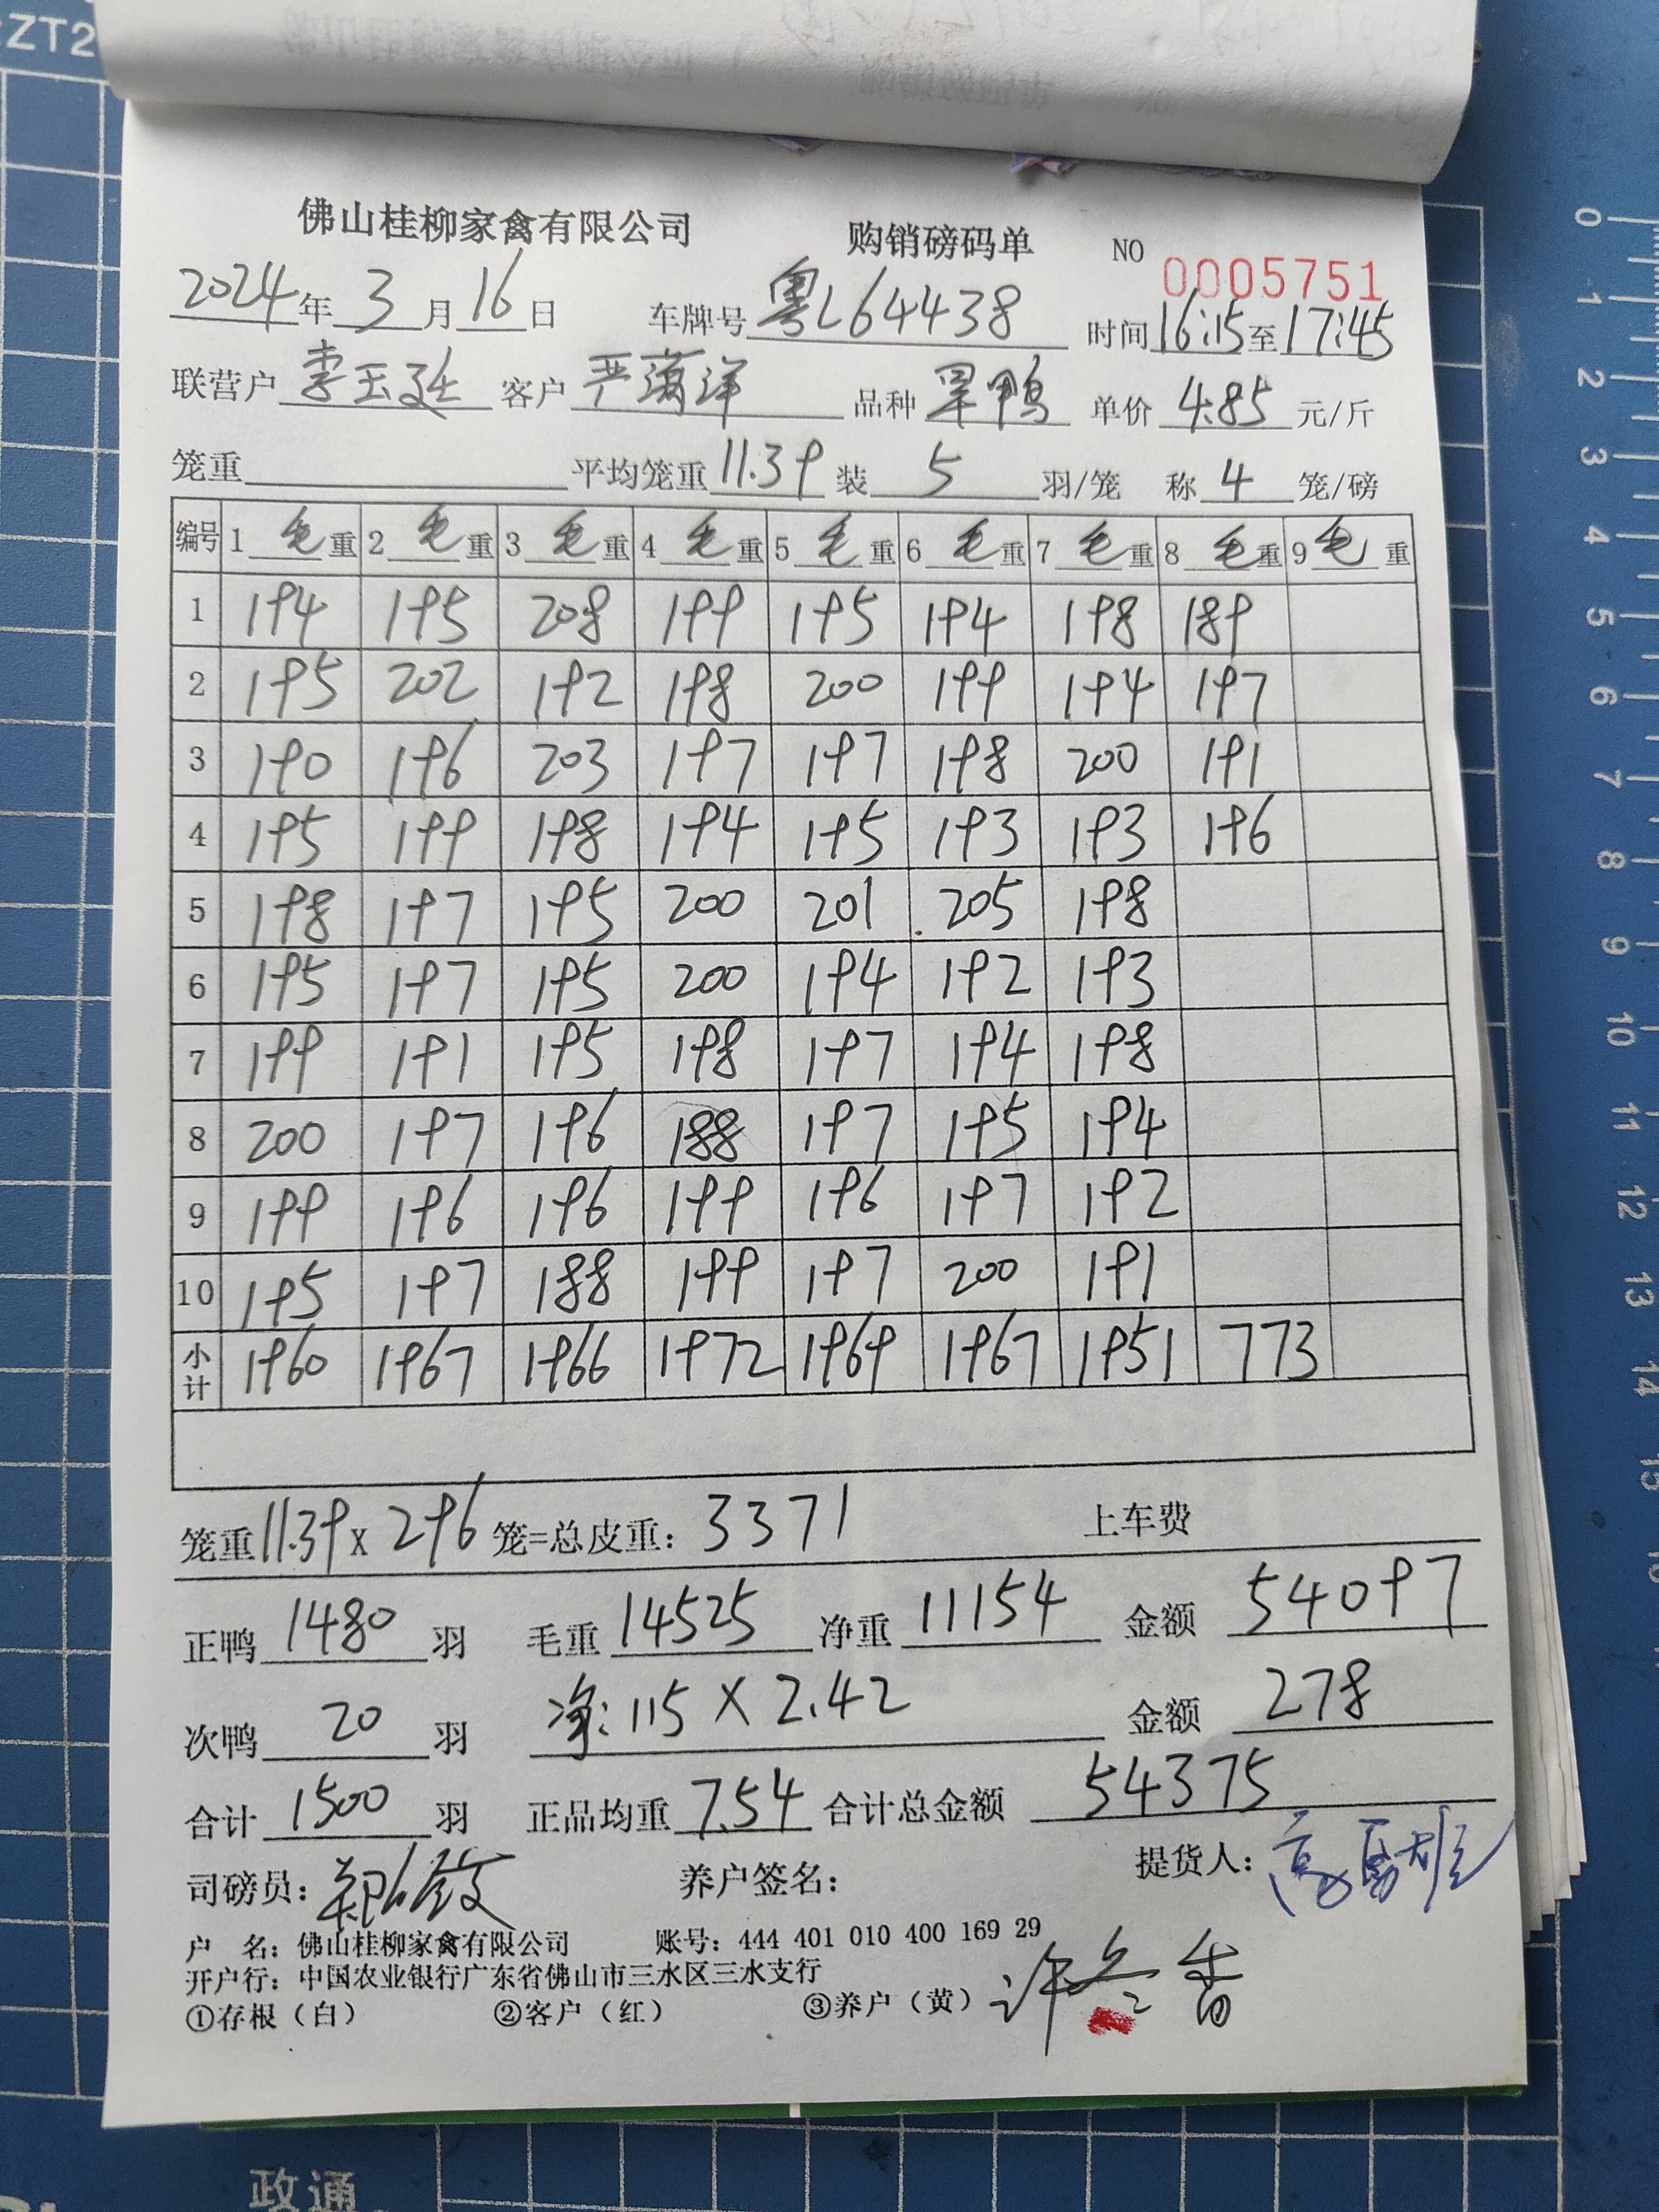 ZT2
佛山桂柳家禽有限公司 购销磅码单 NO 0005751
2024年3月16日 车牌号 粤L64438 时间 16:15至17:45
联营户 李玉廷 客户 严满洋 品种 罩鸭 单价 4.85 元/斤
笼重 平均笼重 11.39 装 5 羽/笼 称 4 笼/磅
编号 1 毛重 2 毛重 3 毛重 4 毛重 5 毛重 6 毛重 7 毛重 8 毛重 9 毛重
1 194 195 208 199 195 194 198 189
2 195 202 192 198 200 199 194 197
3 190 196 203 197 197 198 200 191
4 195 199 198 194 195 193 193 196
5 198 197 195 200 201 205 198
6 195 197 195 200 194 192 193
7 199 191 195 198 197 194 198
8 200 197 196 188 197 195 194
9 199 196 196 199 196 197 192
10 195 197 188 199 197 200 191
小计 1960 1967 1966 1972 1969 1967 1951 773
笼重 11.39 X 296 笼=总皮重: 3371 上车费
正鸭 1480 羽 毛重 14525 净重 11154 金额 54097
次鸭 20 羽 净: 115 X 2.42 金额 278
合计 1500 羽 正品均重 7.54 合计总金额 54375
司磅员: 养户签名: 提货人:
户 名: 佛山桂柳家禽有限公司 账号: 444 401 010 400 169 29
开户行: 中国农业银行广东省佛山市三水区三水支行
①存根（白） ②客户（红） ③养户（黄） 许冬香
政通
0
1
2
3
4
5
6
7
8
9
10
11
12
13
14
15